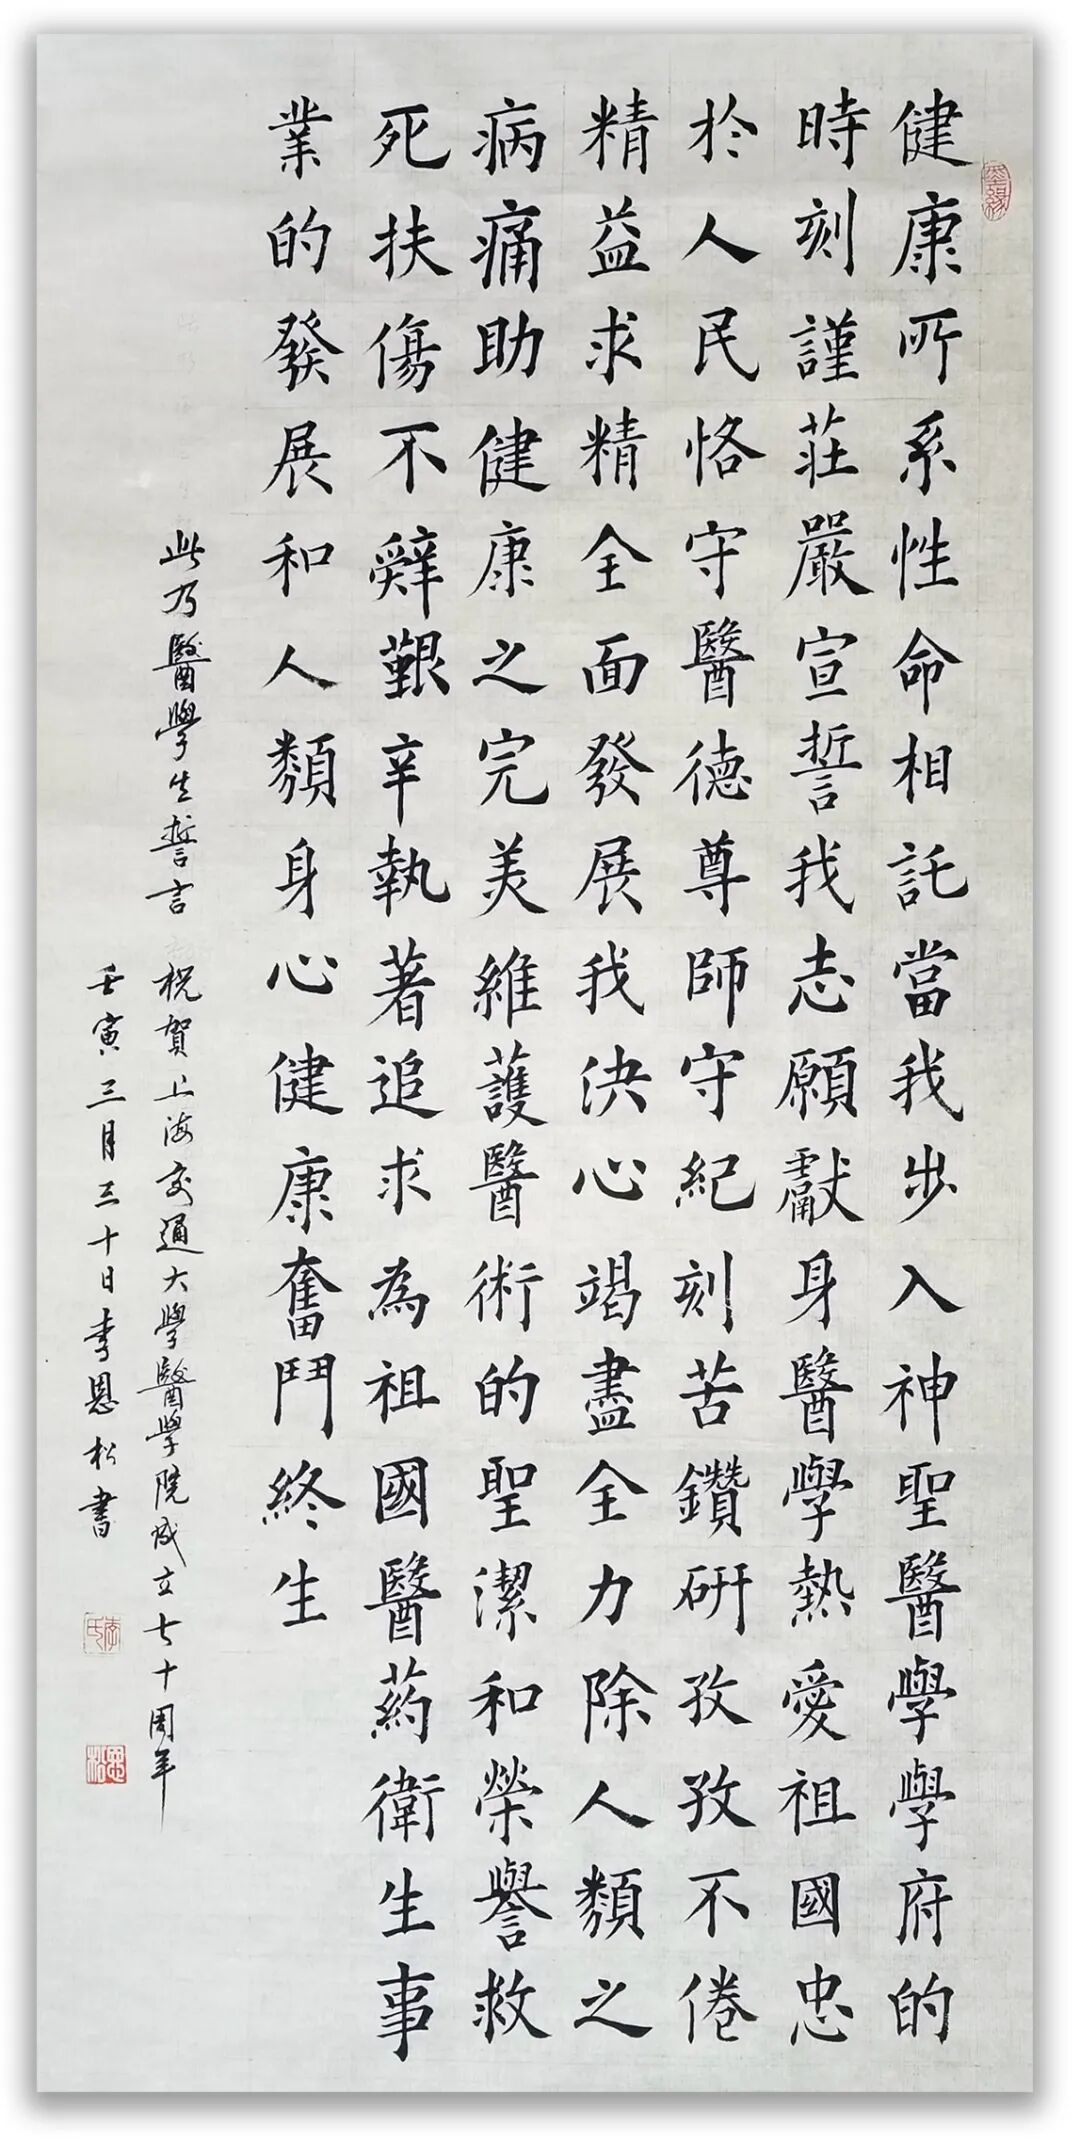 健康所系性命相託當我步入神聖醫學學府的
時刻謹莊嚴宣誓我志願獻身醫學熱愛祖國忠
於人民恪守醫德尊師守紀刻苦鑽研孜孜不倦
精益求精全面發展我決心竭盡全力除人類之
病痛助健康之完美維護醫術的聖潔和榮譽救
死扶傷不辭艱辛執著追求為祖國醫药衛生事
業的發展和人類身心健康奮鬥終生
此乃醫學生誓言祝賀上海交通大學醫學院成立七十周年
壬寅三月三十日李恩松書
墨緣
李氏
恩松